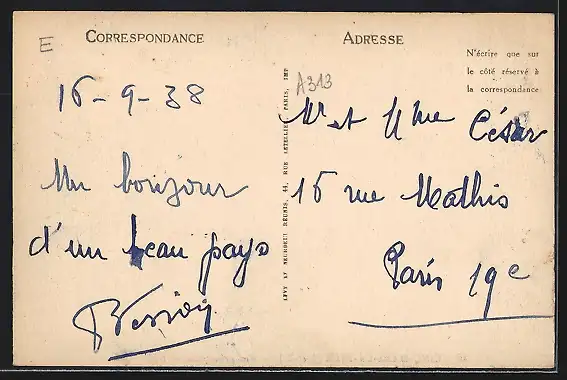 E
CORRESPONDANCE
ADRESSE
N'écrire que sur
le côté réservé à
la correspondance
A313
16-9-38
Un bonjour
d'un beau pays
LEVY ET NEURDEIN RÉUNIS, 44, RUE LETELLIER, PARIS, IMP
Mr et Mme César
16 rue Mathis
Paris 19e